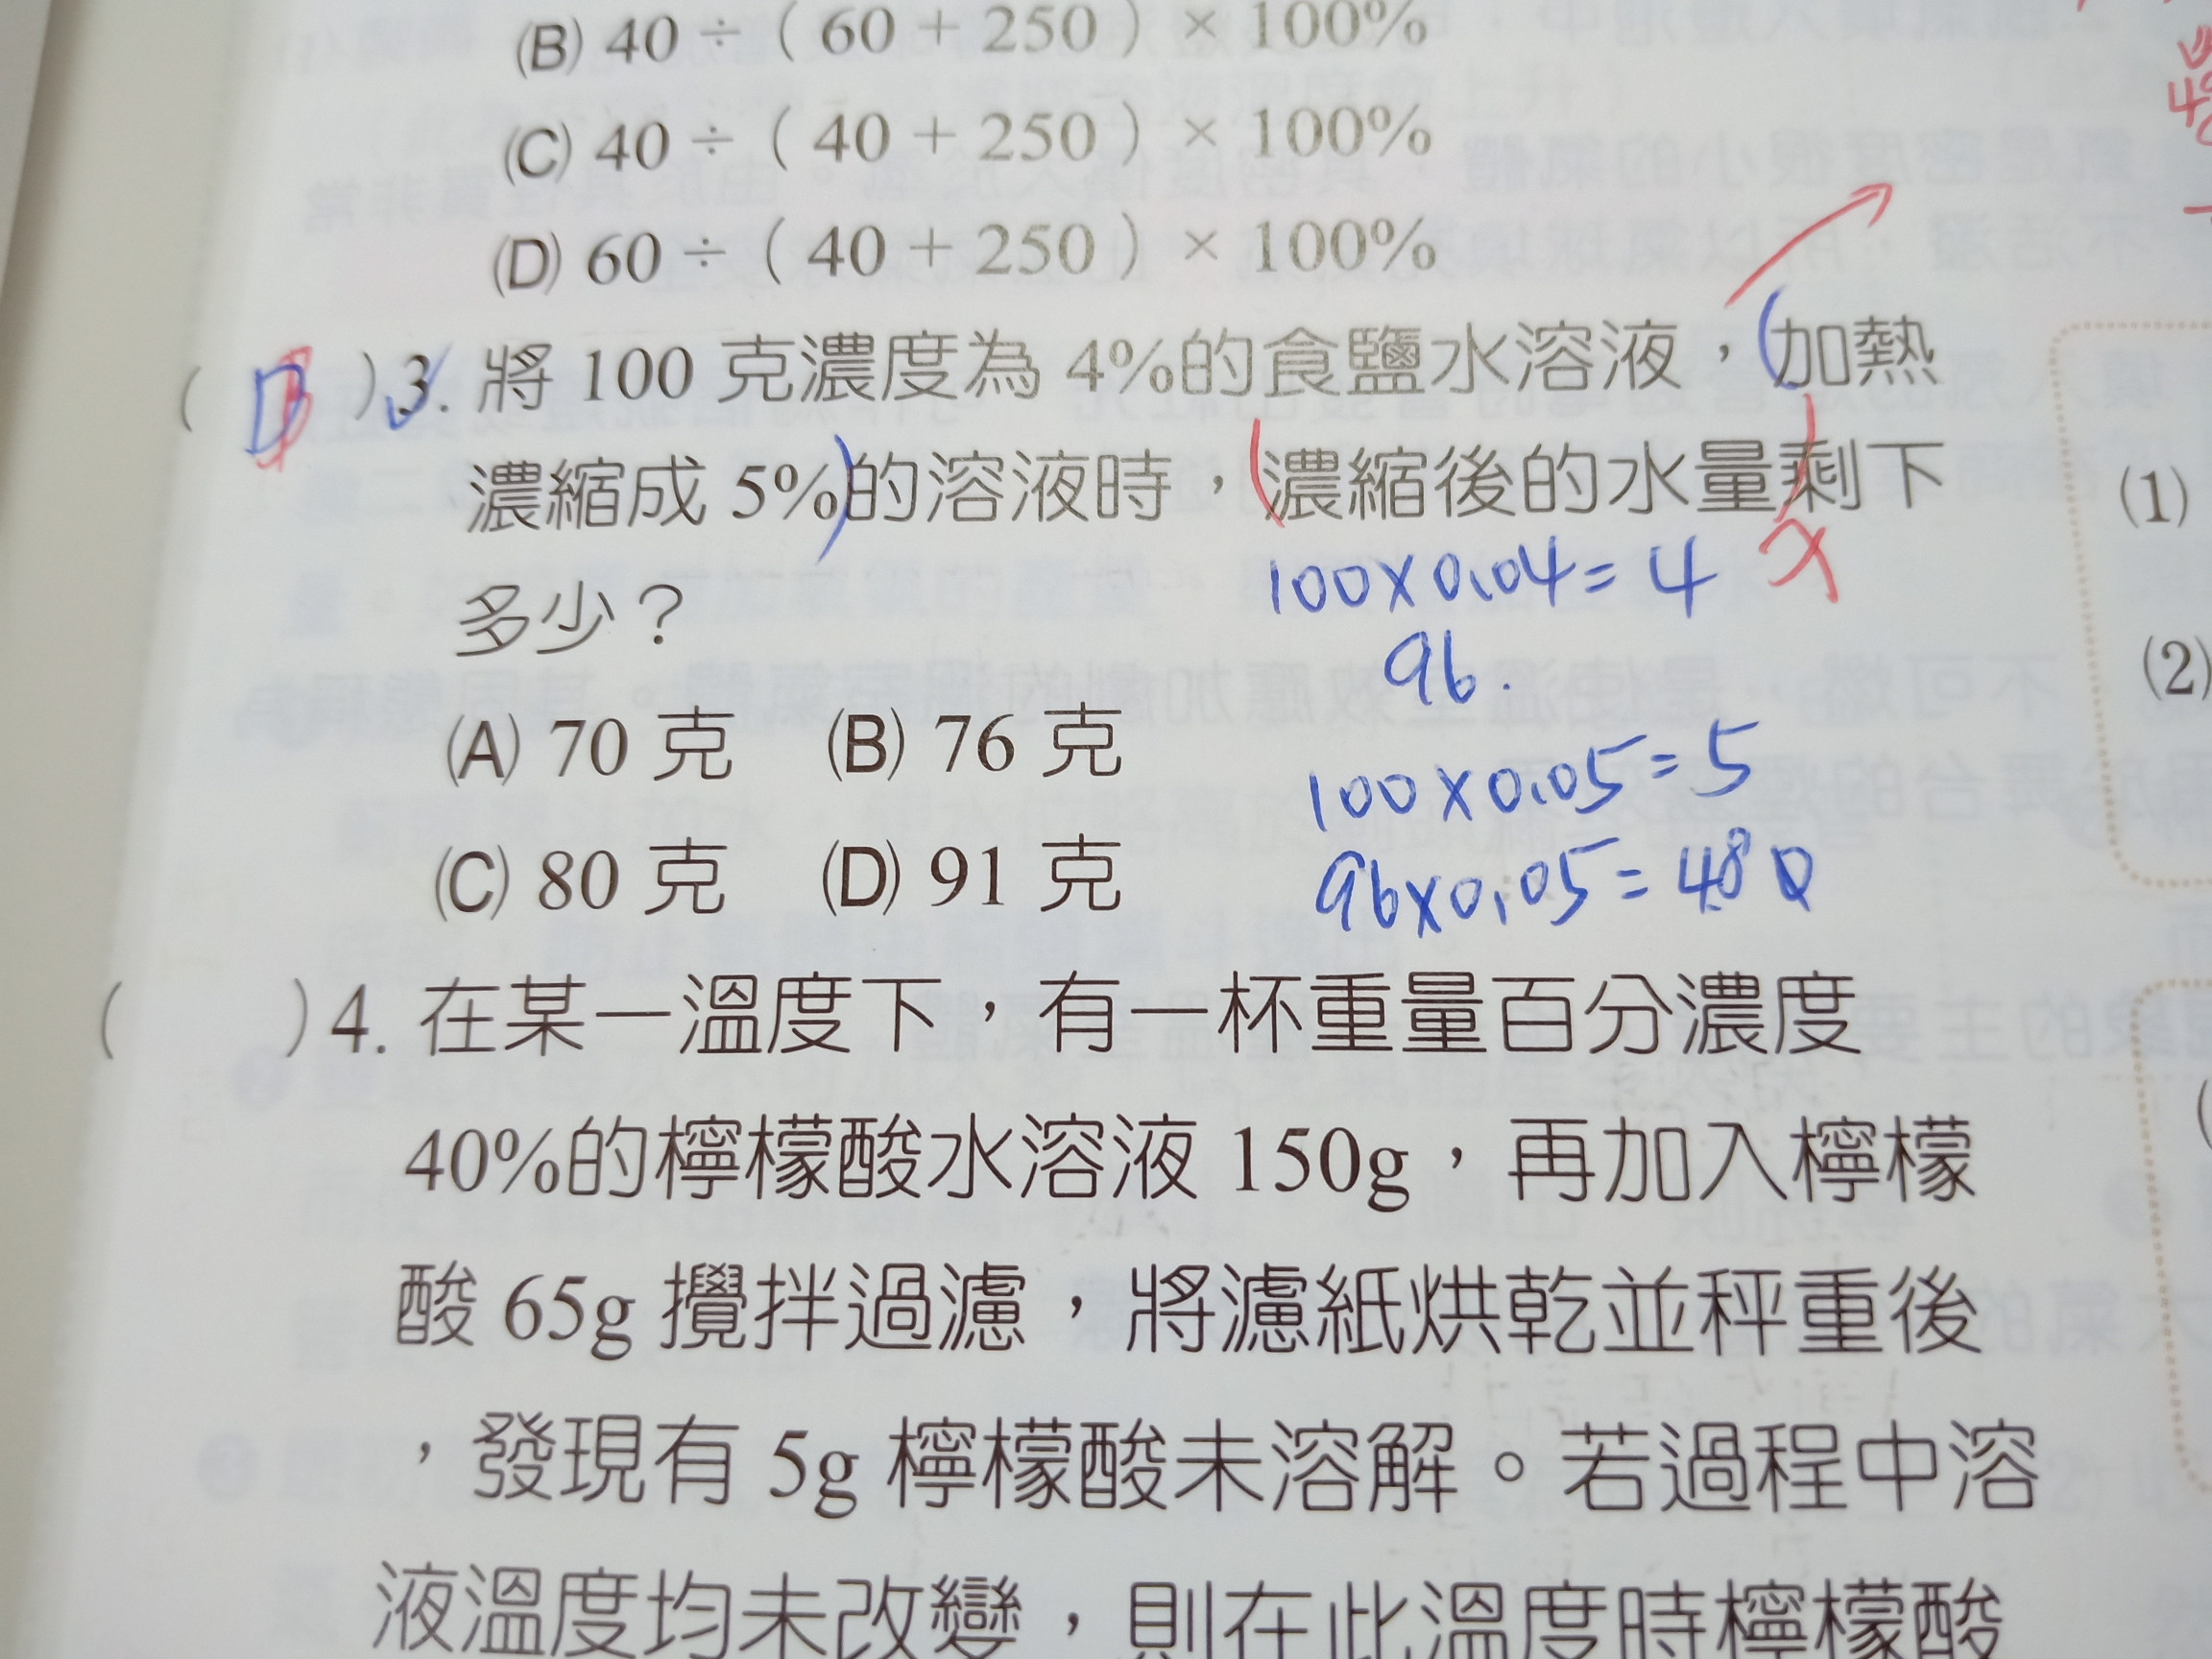 (B) 40 ÷ ( 60 + 250 ) × 100%
(C) 40 ÷ ( 40 + 250 ) × 100%
(D) 60 ÷ ( 40 + 250 ) × 100%
( B )3. 將 100 克濃度為 4%的食鹽水溶液，(加熱
濃縮成 5%)的溶液時，(濃縮後的水量)剩下
多少？
x
100×0.04=4
96.
(A) 70 克 (B) 76 克
100×0.05=5
(C) 80 克 (D) 91 克
96×0.05=4.80
( )4. 在某一溫度下，有一杯重量百分濃度
40%的檸檬酸水溶液 150g，再加入檸檬
酸 65g 攪拌過濾，將濾紙烘乾並秤重後
，發現有 5g 檸檬酸未溶解。若過程中溶
液溫度均未改變，則在此溫度時檸檬酸
(1)
(2)